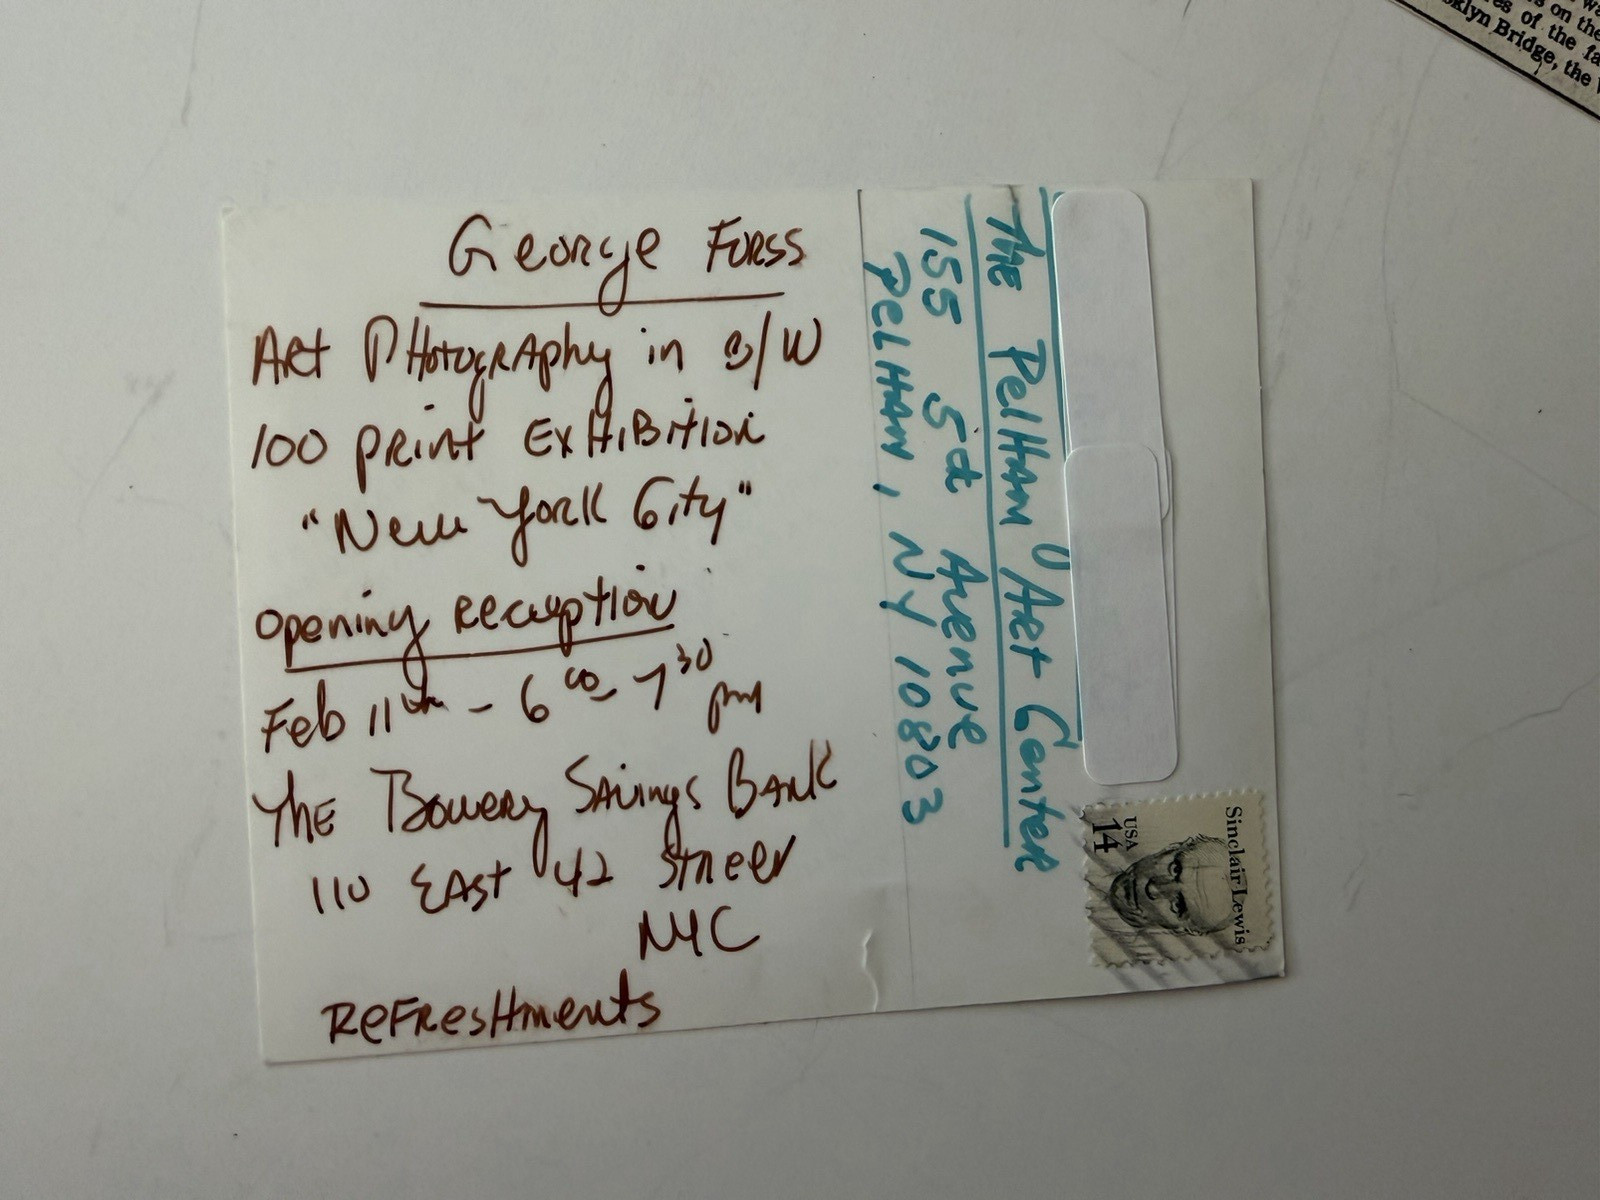 George Forss
Art Photography in B/W
100 print Exhibition
"New York City"
opening reception
Feb 11th - 6 00 - 7 30 pm
The Bowery Savings Bank
110 East 42 Street
NYC
Refreshments
The Pelham Art Center
155 5th Avenue
Pelham, NY 10803
Sinclair Lewis
USA
14
on the
of the fa
Bridge, the